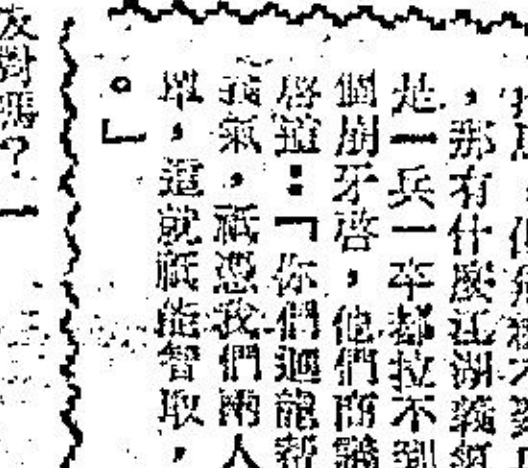 ，那有什麼江湖義氣
是一兵一卒都拉不到
個崩牙啓，他們商議
啓道：「你們迴龍幫
義氣，祇憑我們兩人
單，這就祇能智取，
。」
對嗎？